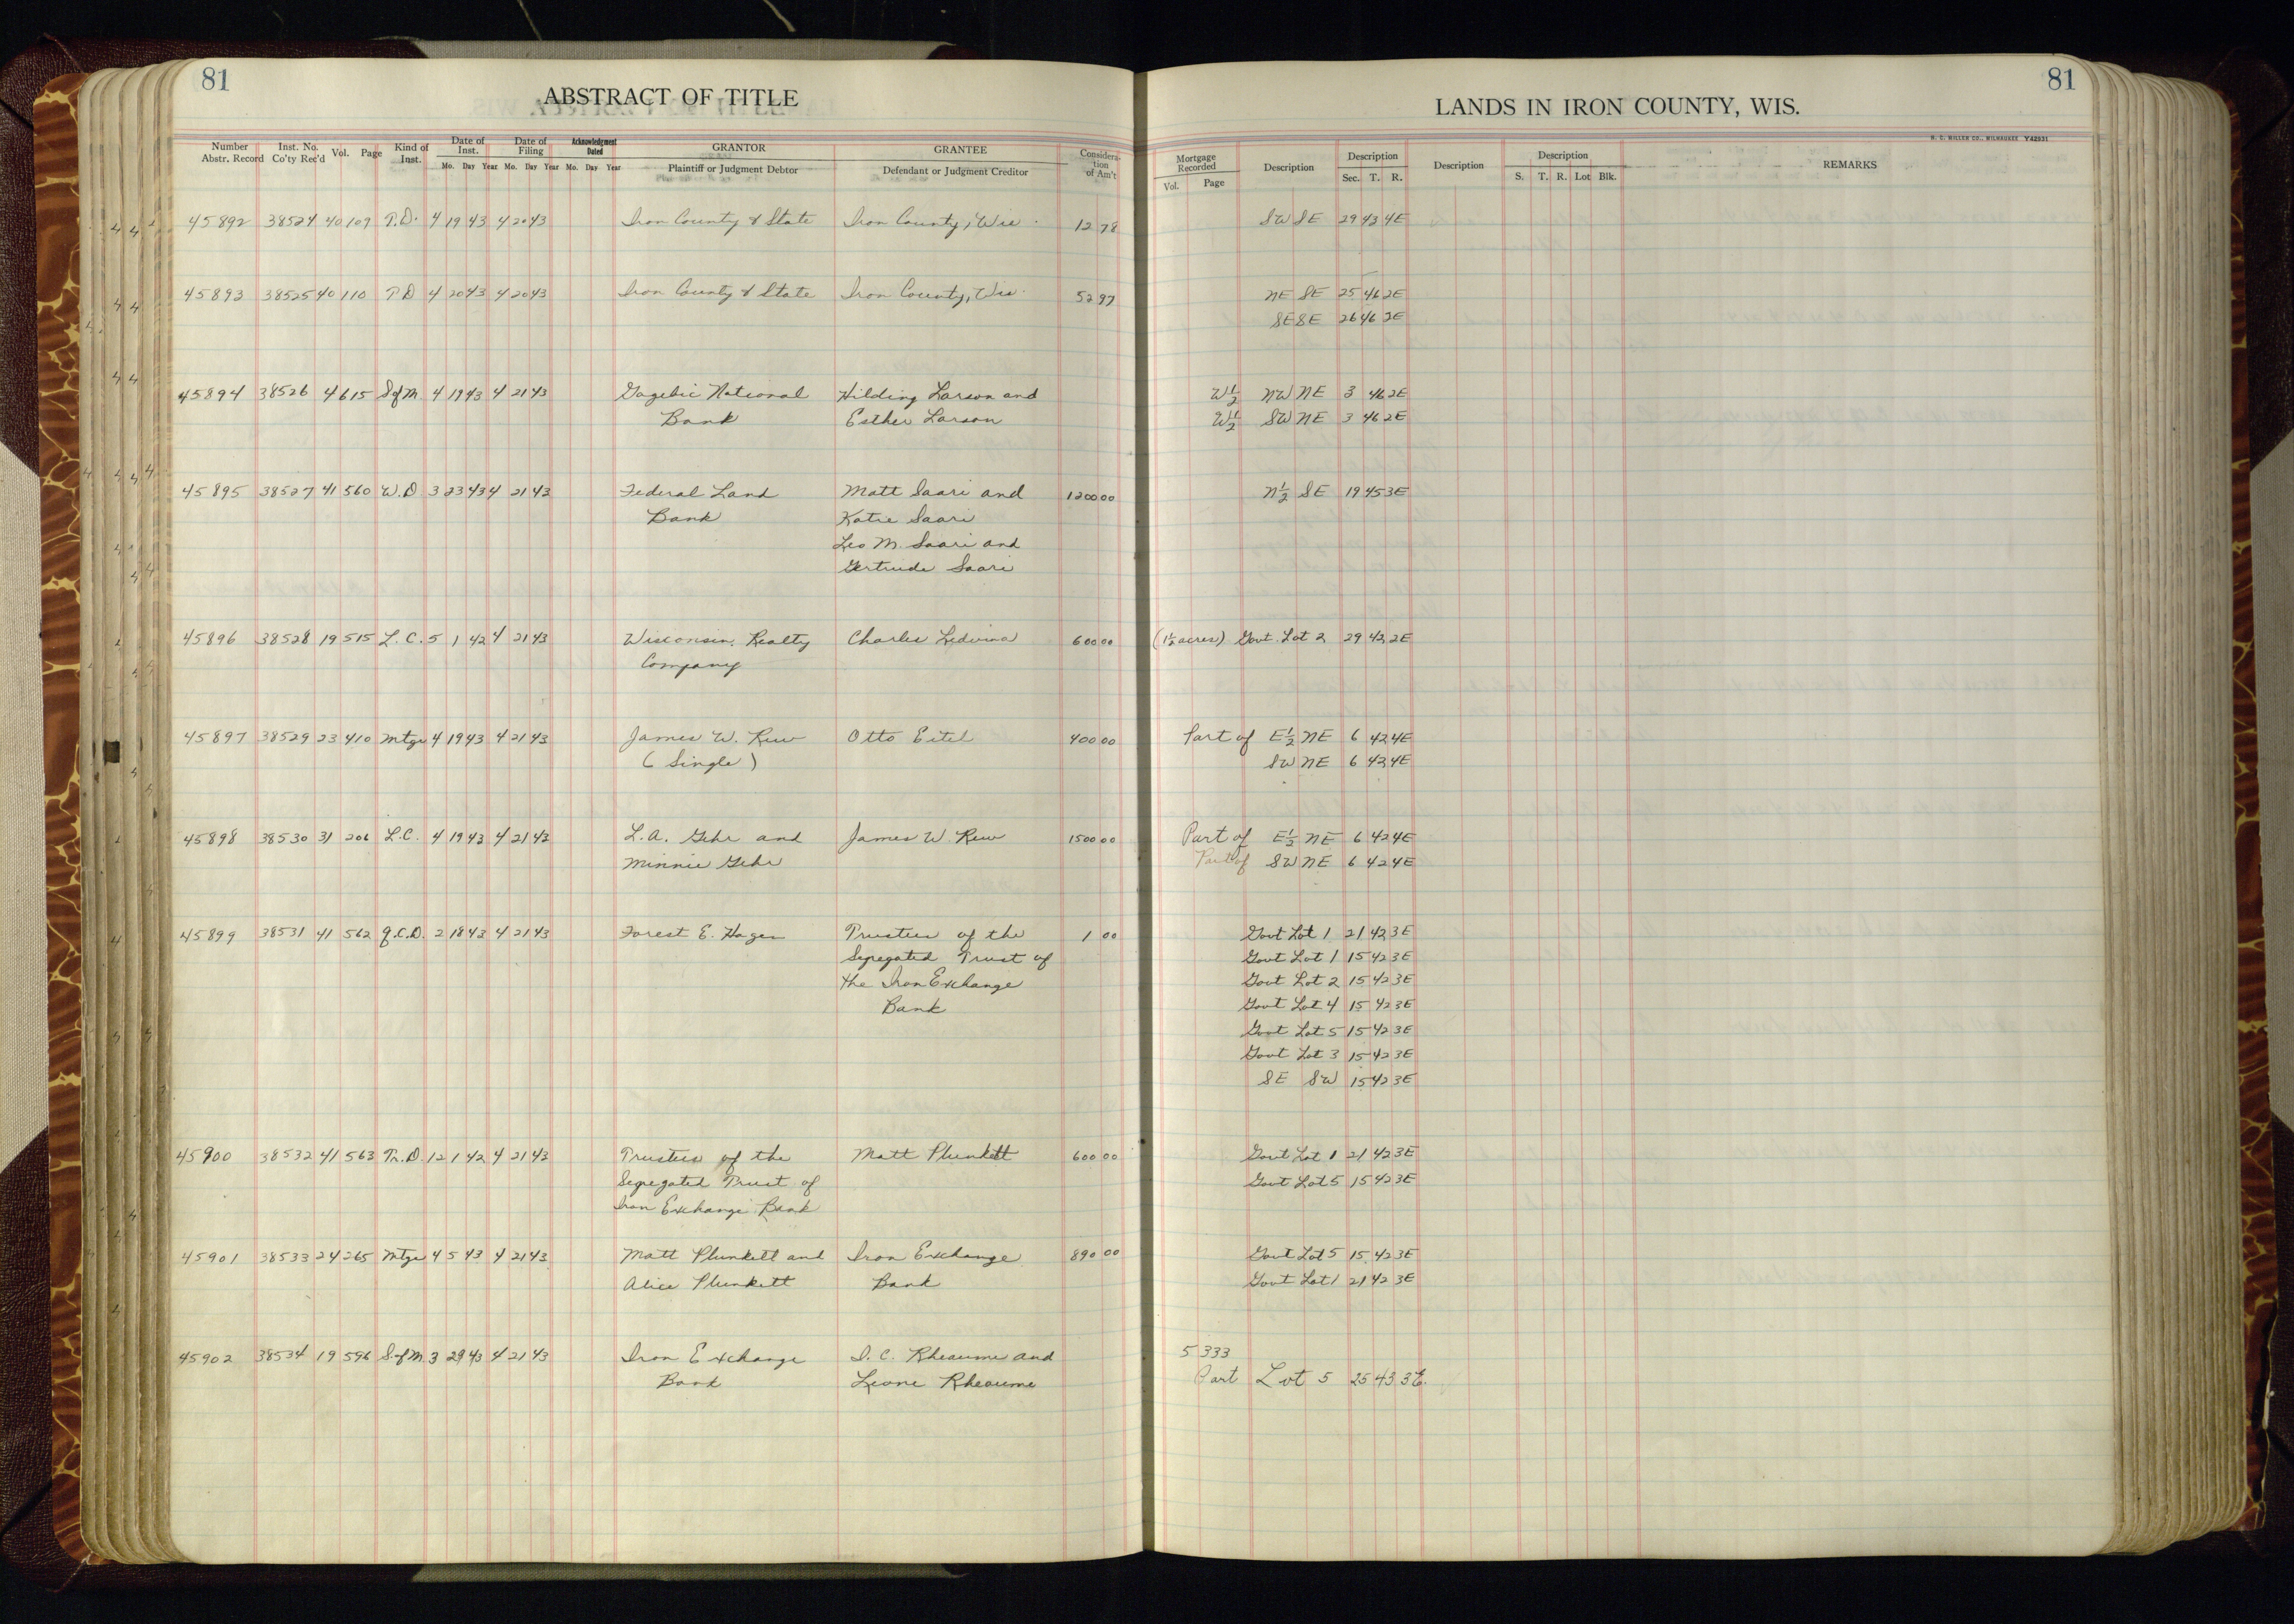 81
ABSTRACT OF TITLE
Number Abstr. Record Inst. No. Co'ty Rec'd Vol. Page Kind of Inst. Date of Inst. Mo. Day Year Date of Filing Mo. Day Year Acknowledgment Dated Mo. Day Year GRANTOR Plaintiff or Judgment Debtor GRANTEE Defendant or Judgment Creditor Considera-tion of Am't
45892 38524 40 109 T.D. 4 19 43 4 20 43 Iron County & State Iron County, Wis. 12 78
45893 38525 40 110 T D 4 20 43 4 20 43 Iron County & State Iron County, Wis. 52 97
45894 38526 4 615 S of M. 4 19 43 4 21 43 Gogebic National Hilding Larson and
Bank Esther Larson
45895 38527 41 560 W. D. 3 23 43 4 21 43 Federal Land Matt Saari and 1200 00
Bank Katie Saari
Leo M. Saari and
Gertrude Saari
45896 38528 19 515 L. C. 5 1 42 4 21 43 Wisconsin Realty Charles Ledvina 600 00
Company
45897 38529 23 410 Mtge 4 19 43 4 21 43 James W. Rew Otto Eitel 400 00
(Single)
45898 38530 31 206 L.C. 4 19 43 4 21 43 L. A. Gehr and James W. Rew 1500 00
Minnie Gehr
45899 38531 41 562 Q.C.D. 2 18 43 4 21 43 Forest E. Hagen Trustees of the 1 00
Segregated Trust of
the Iron Exchange
Bank
45900 38532 41 563 Tr. D. 12 1 42 4 21 43 Trustees of the Matt Plunkett 600 00
Segregated Trust of
Iron Exchange Bank
45901 38533 24 265 Mtge 4 5 43 4 21 43 Matt Plunkett and Iron Exchange 890 00
Alice Plunkett Bank
45902 38534 19 596 S. of M. 3 29 43 4 21 43 Iron Exchange D. C. Rheaume and
Bank Leone Rheaume
81
LANDS IN IRON COUNTY, WIS.
H. C. MILLER CO., MILWAUKEE Y42931
Mortgage Recorded Vol. Page Description Description Sec. T. R. Description Description S. T. R. Lot Blk. REMARKS
SW SE 29 43 4E
NE SE 25 46 2E
SE SE 26 46 2E
W½ NW NE 3 46 2E
W½ SW NE 3 46 2E
N½ SE 19 45 3E
(1½ acres) Govt. Lot 2 29 42 2E
Part of E½ NE 6 42 4E
SW NE 6 42 4E
Part of E½ NE 6 42 4E
Part of SW NE 6 42 4E
Govt Lot 1 21 42 3E
Govt Lot 1 15 42 3E
Govt Lot 2 15 42 3E
Govt Lot 4 15 42 3E
Govt Lot 5 15 42 3E
Govt Lot 3 15 42 3E
SE SW 15 42 3E
Govt Lot 1 21 42 3E
Govt Lot 5 15 42 3E
Govt Lot 5 15 42 3E
Govt Lot 1 21 42 3E
5 333
Part Lot 5 25 43 3E.